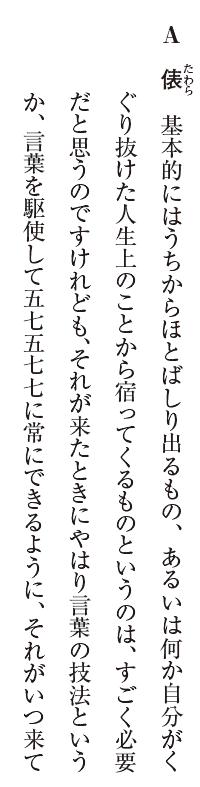 A 俵 基本的にはうちからほとばしり出るもの、あるいは何か自分がく
ぐり抜けた人生上のことから宿ってくるものというのは、すごく必要
だと思うのですけれども、それが来たときにやはり言葉の技法という
か、言葉を駆使して五七五七七に常にできるように、それがいつ来て
たわら